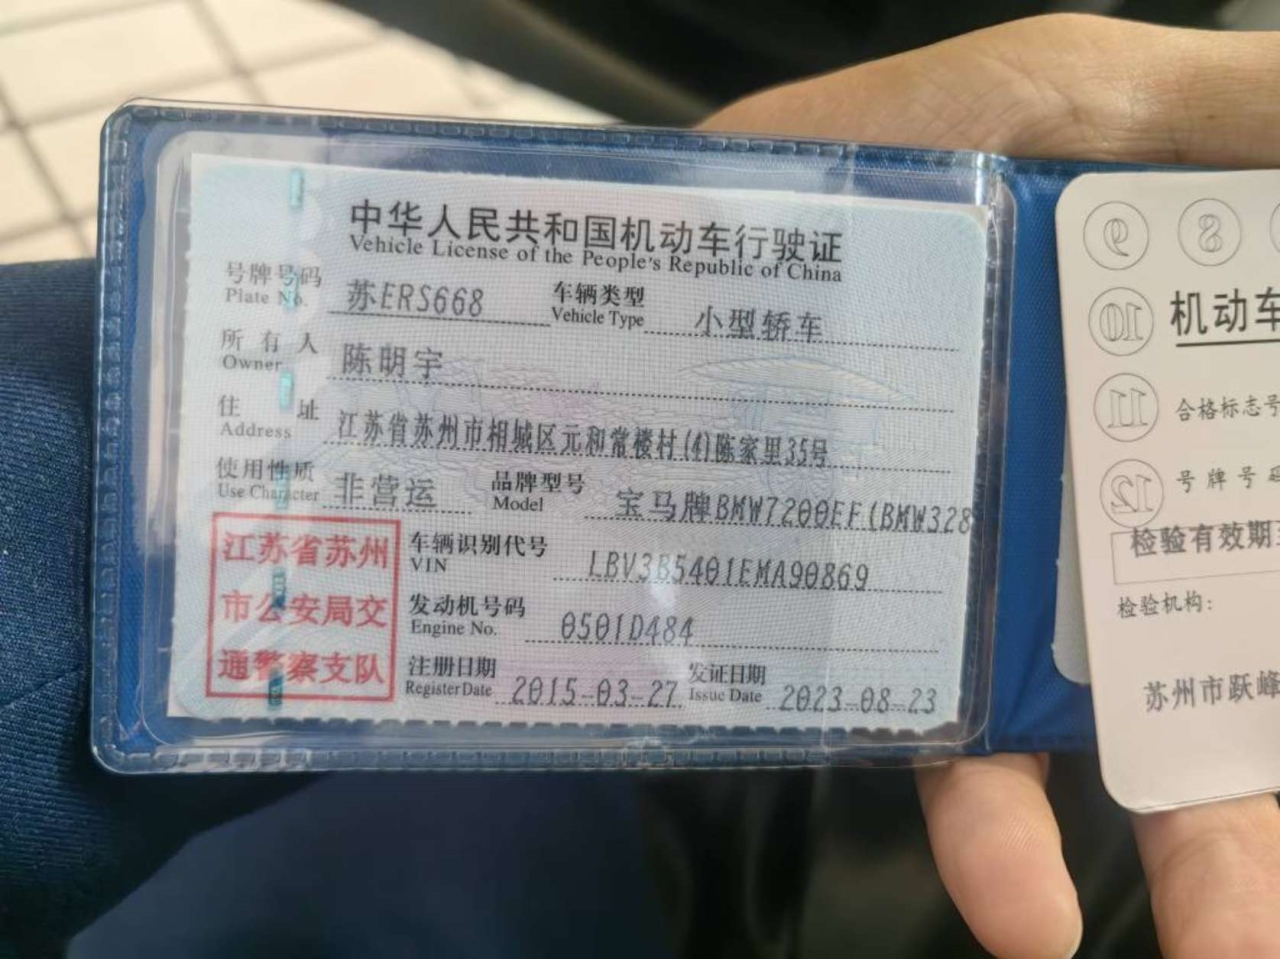 中华人民共和国机动车行驶证
Vehicle License of the People's Republic of China
号牌号码 苏ERS668 车辆类型 小型轿车
Plate No. Vehicle Type
所有人 陈明宇
Owner
住址 江苏省苏州市相城区元和常楼村(4)陈家里35号
Address
使用性质 非营运 品牌型号 宝马牌BMW7200EF(BMW328
Use Character Model
江苏省苏州
市公安局交
通警察支队
车辆识别代号 LBV3B5401EMA90869
VIN
发动机号码 0501D484
Engine No.
注册日期 2015-03-27 发证日期 2023-08-23
Register Date Issue Date
9 8
10 机动车
11 合格标志号
12 号牌号码
检验有效期至
检验机构:
苏州市跃峰